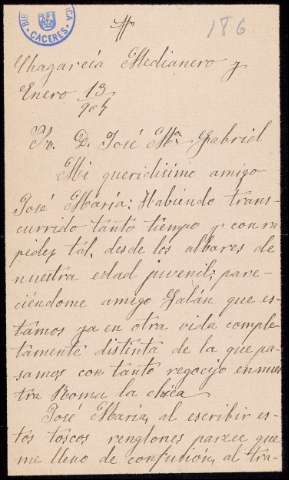 186
CÁCERES
Chagarcia Medianero y
Enero 13/904
Sr. D. José Mª Gabriel
Mi queridisimo amigo
José Maria: Habiendo trans-
currido tanto tiempo y con ra
pidez tal, desde los albores de
nuestra edad juvenil; pare-
ciéndome amigo Galán que es-
támos ya en otra vida comple-
tamente distinta de la que pa-
samos con tanto regocijo en nues
tra Roma la chica
José Maria, al escribir es-
tos toscos renglones parece que
me lleno de confusión, al tra-